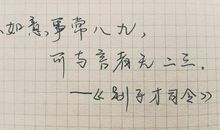 如意事常八九，
可与言者无二三.
——《别子才司令》